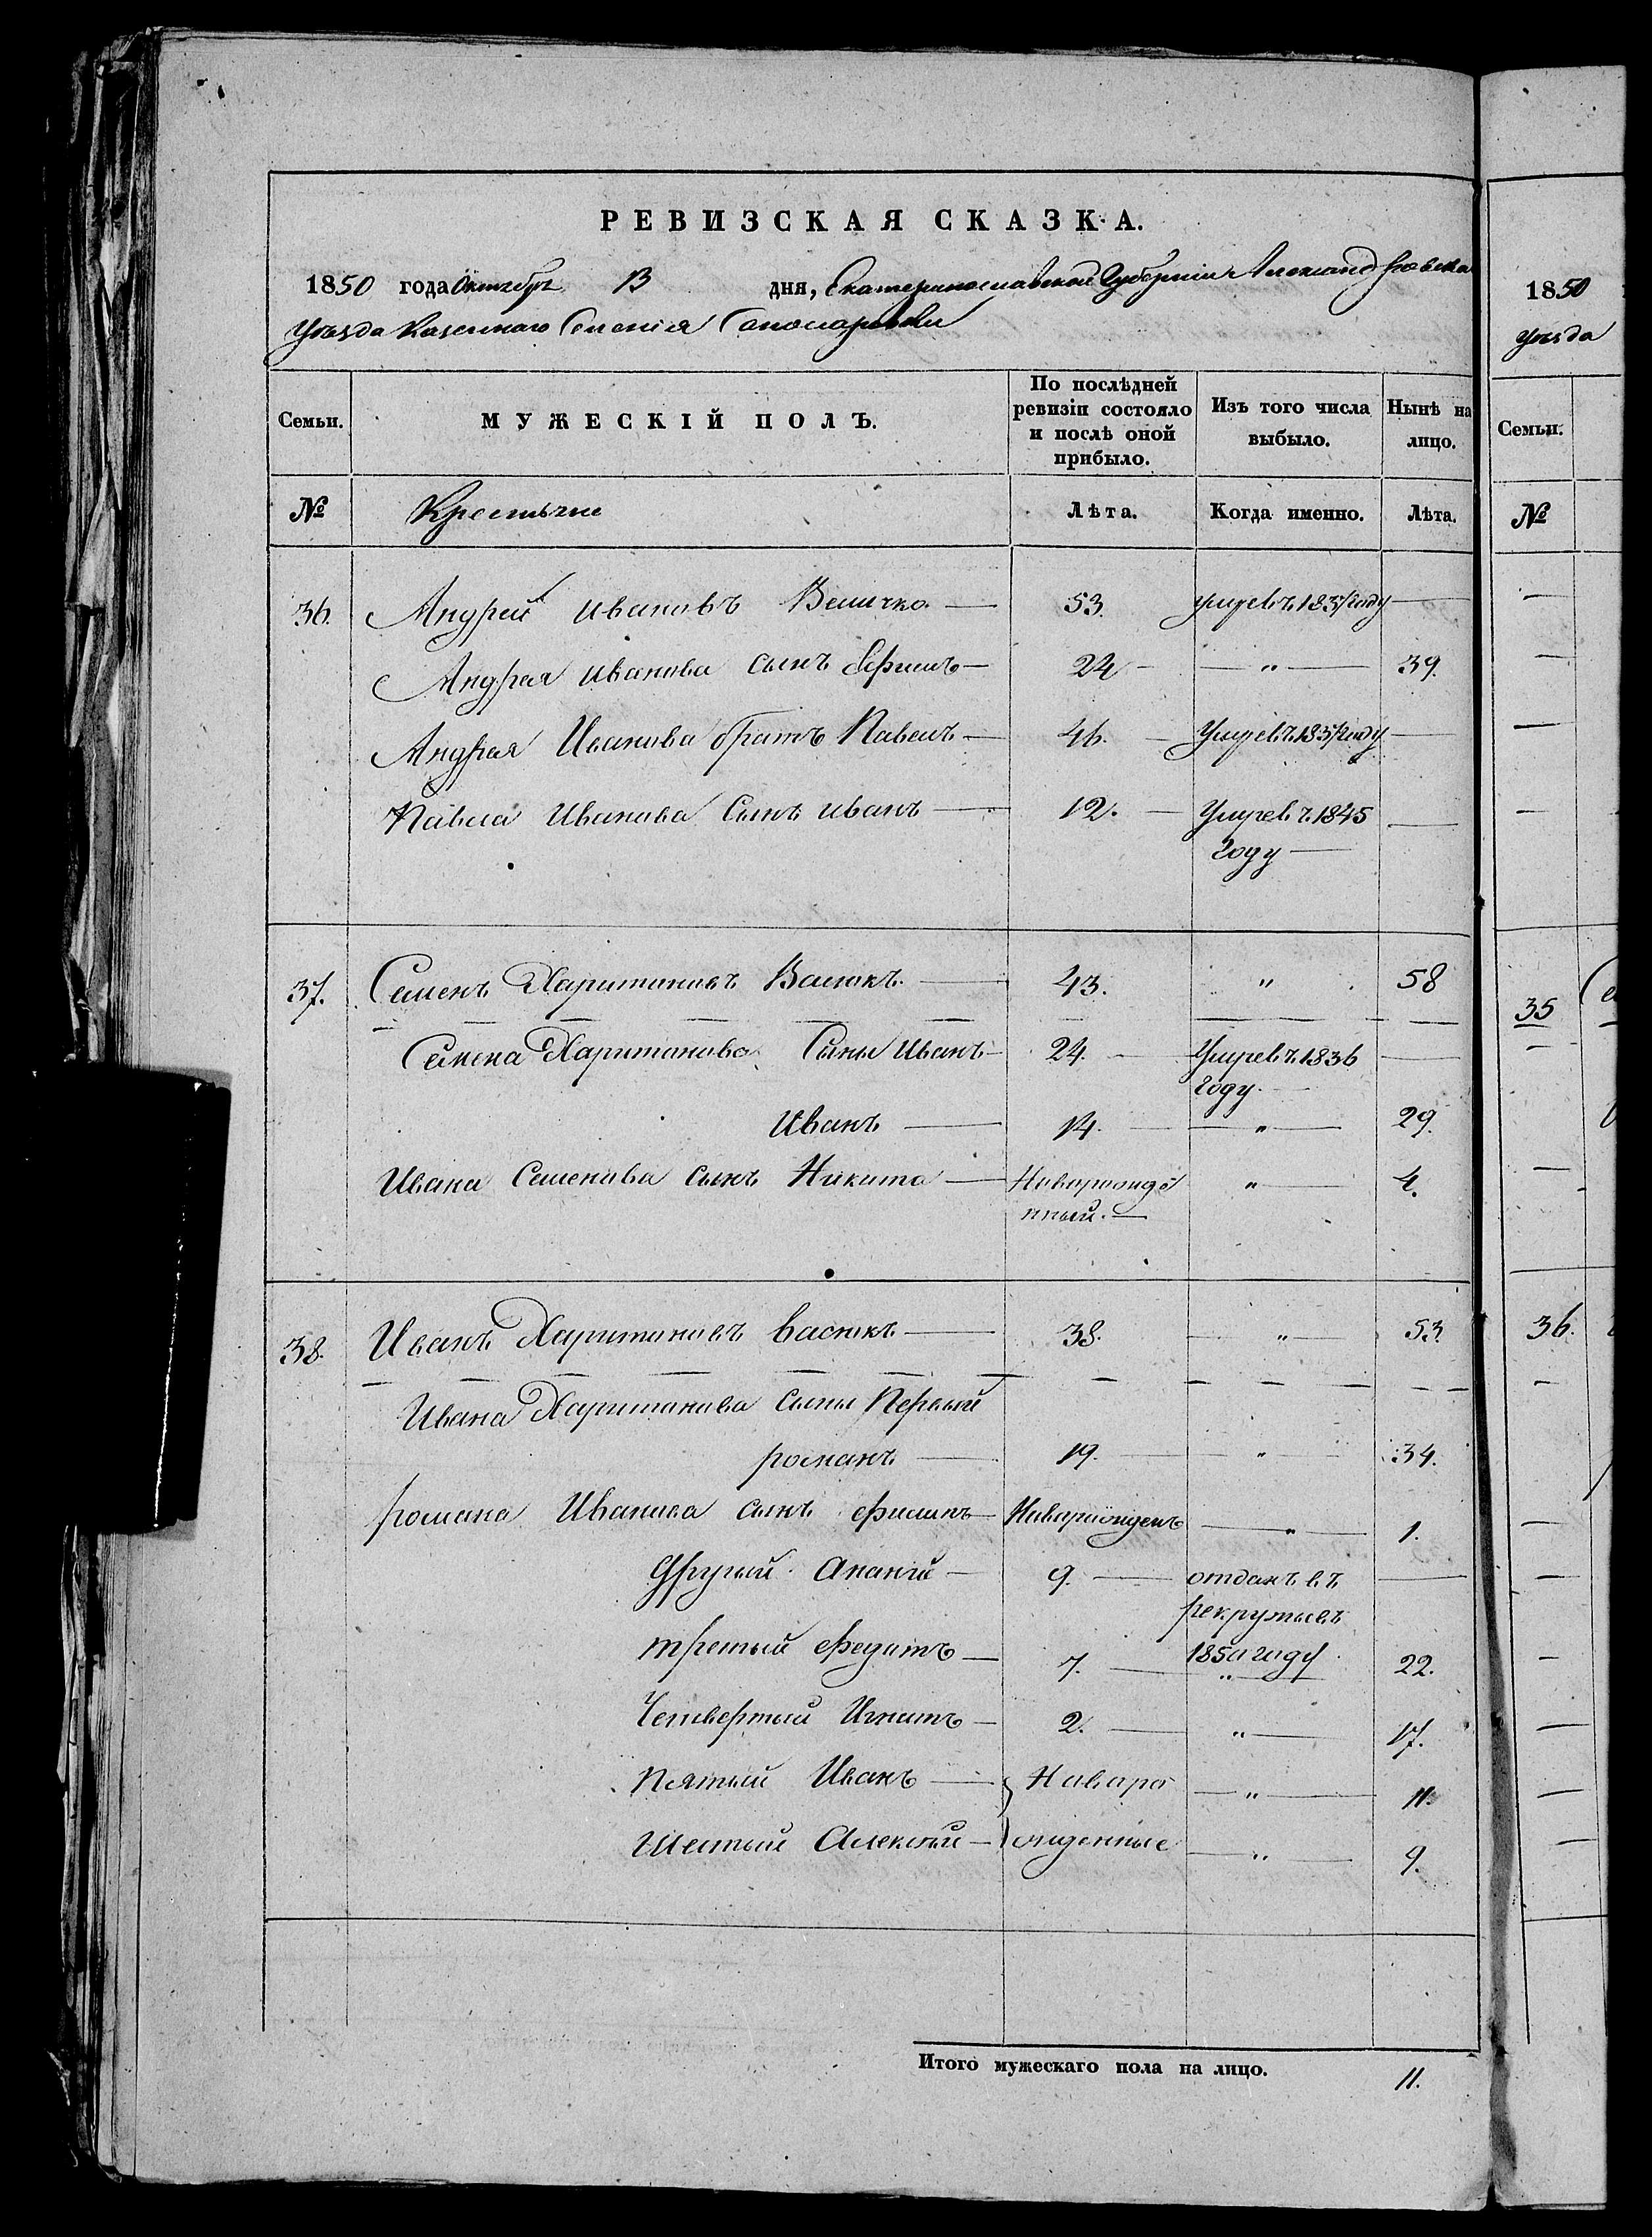 РЕВИЗСКАЯ СКАЗКА.
1850 года Октября 13 дня, Екатеринославской Губернии Александровска
Уѣзда Казеннаго Селенія
Семьи. МУЖЕСКІЙ ПОЛЪ. По послѣдней ревизіи состояло и послѣ оной прибыло. Изъ того числа выбыло. Нынѣ на лицо.
№ Крестьяне Лѣта. Когда именно. Лѣта.
36. Андрей Ивановъ Величко — 53. умревъ 1837 году —
Андрея Иванова сынъ Ефимъ — 24 — — " — 39.
Андрея Иванова братъ Павелъ — 46. — Умревъ 1837 году —
Павла Иванова Сынъ Иванъ — 12. — Умревъ 1845 —
году —
37. Семенъ Харитоновъ Васюкъ. — 43. " 58
Семена Харитонова Сыны Иванъ — 24. — Умревъ 1836 —
году. —
Иванъ — 14. — — " — 29.
Ивана Семенова сынъ Никита — Наворожде " — 4.
нный. —
38. Иванъ Харитоновъ Васюкъ — 38. — " — 53.
Ивана Харитонова сыны Первый
романъ — 19. — — " — 34.
романа Иванова сынъ Филипъ — Наворожденъ — " — 1.
Другий Ананій — 9. — отданъ въ —
рекруты въ
третый Федотъ — 7. — 1850 году 22.
" —
Четвертый Игнатъ — 2. — " — 17.
Пятый Иванъ — Наваро — " — 11.
Шестый Алексѣй — жденные — " — 9.
Итого мужескаго пола на лицо. 11.
1850
уѣзда
Семьи.
№
35
36.